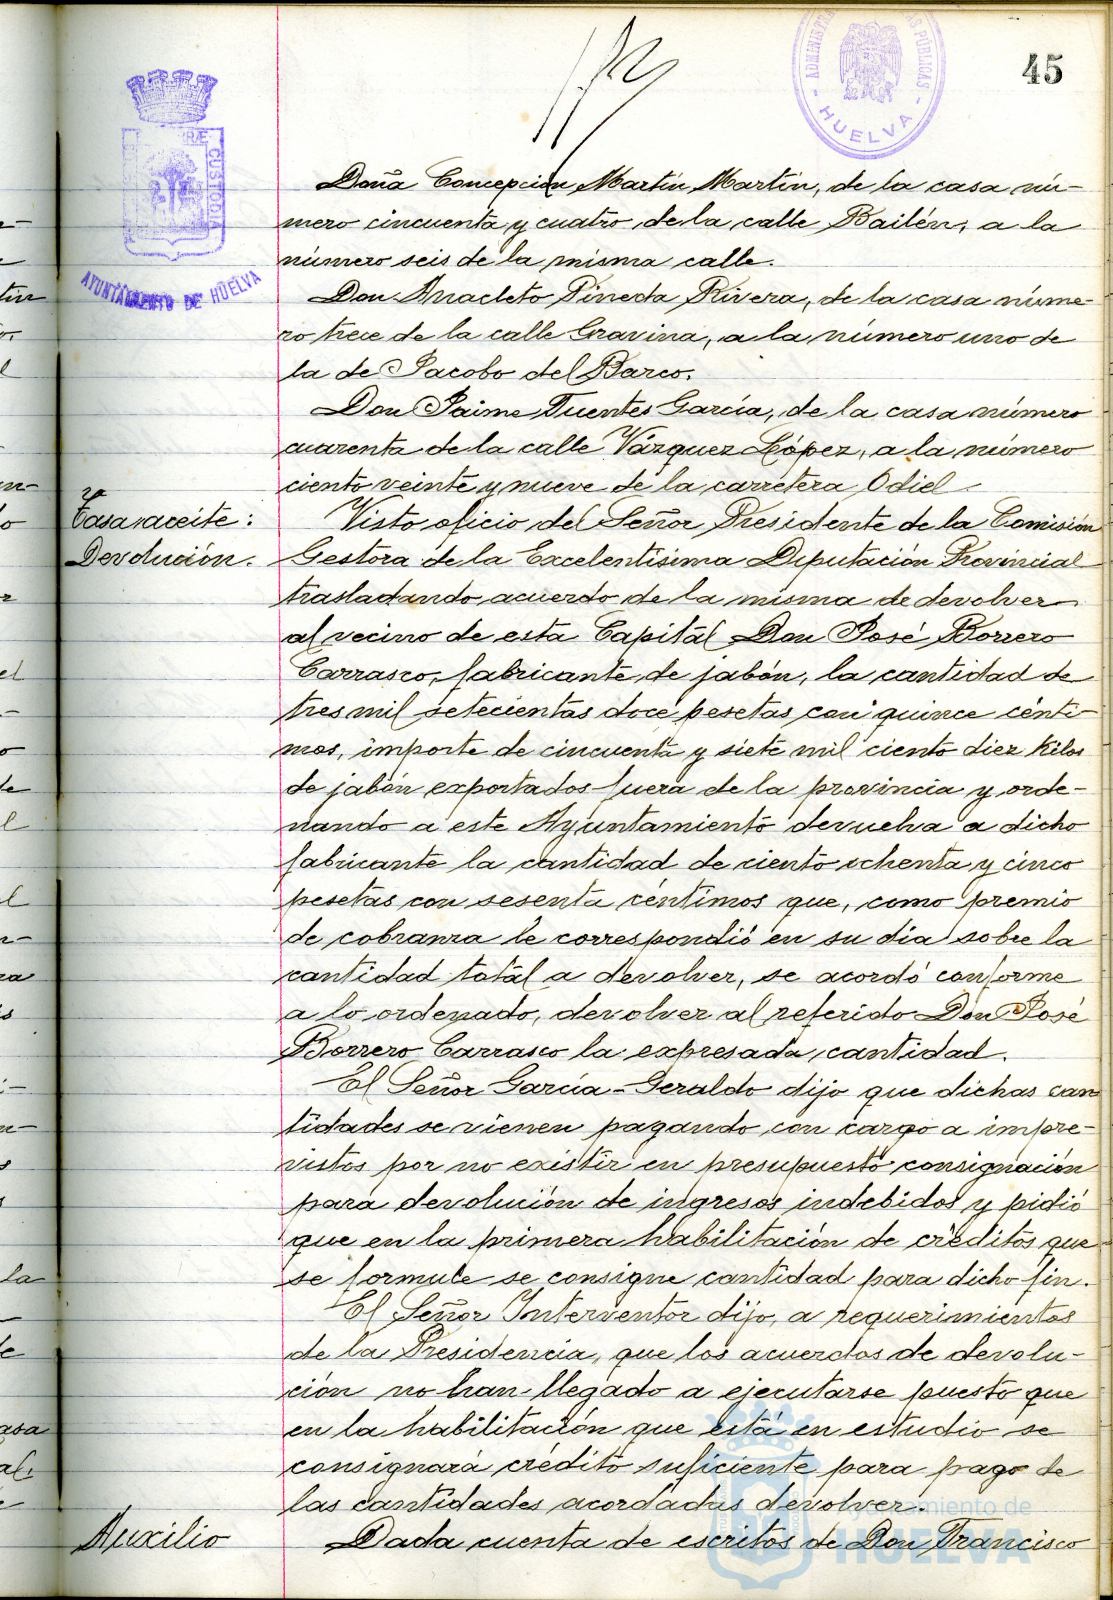 45
ADMINISTRA
AS PÚBLICAS
HUELVA
CUSTODIA
AYUNTAMIENTO DE HUELVA
Doña Concepción Martín Martín, de la casa nú-
mero cincuenta y cuatro de la calle Bailén, a la
número seis de la misma calle.
Don Anacleto Pineda Rivera, de la casa núme-
ro trece de la calle Gravina, a la número uno de
la de Jacobo del Barco.
Don Jaime Fuentes García, de la casa número
cuarenta de la calle Vázquez López, a la número
ciento veinte y nueve de la carretera Odiel.
Tasa aceite:
Devolución.
Visto oficio del Señor Presidente de la Comisión
Gestora de la Excelentísima Diputación Provincial
trasladando acuerdo de la misma de devolver
al vecino de esta Capital Don José Borrero
Carrasco, fabricante de jabón, la cantidad de
tres mil setecientas doce pesetas con quince cénti-
mos, importe de cincuenta y siete mil ciento diez kilos
de jabón exportados fuera de la provincia y orde-
nando a este Ayuntamiento devuelva a dicho
fabricante la cantidad de ciento ochenta y cinco
pesetas con sesenta céntimos que, como premio
de cobranza le correspondió en su día sobre la
cantidad total a devolver, se acordó conforme
a lo ordenado, devolver al referido Don José
Borrero Carrasco la expresada cantidad.
El Señor García-Geraldo dijo que dichas can
tidades se vienen pagando con cargo a impre-
vistos por no existir en presupuesto consignación
para devolución de ingresos indebidos y pidió
que en la primera habilitación de créditos que
se formule se consigne cantidad para dicho fin.
El Señor Interventor dijo, a requerimientos
de la Presidencia, que los acuerdos de devolu-
ción no han llegado a ejecutarse puesto que
en la habilitación que está en estudio se
consignará crédito suficiente para pago de
las cantidades acordadas devolver.
Auxilio
Dada cuenta de escritos de Don Francisco
Ayuntamiento de
HUELVA